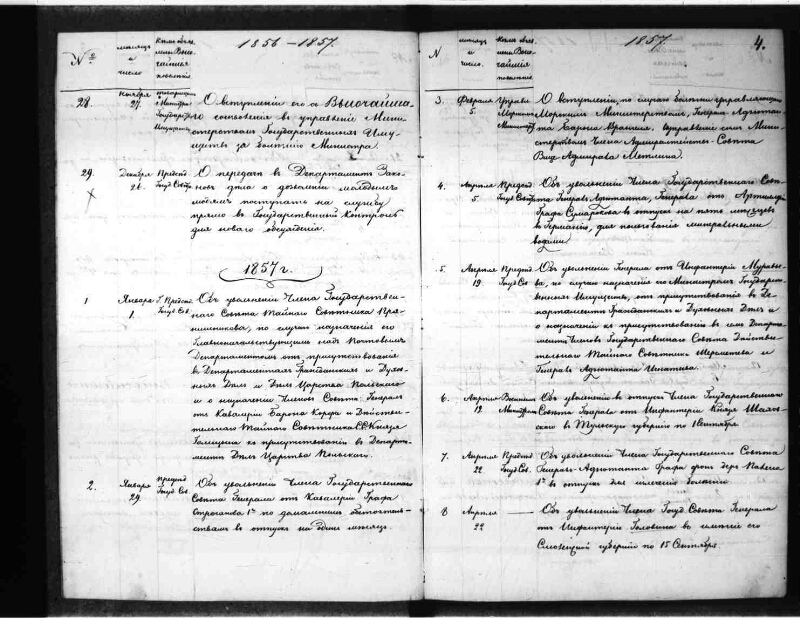 1856 – 1857.
№
мѣсяцъ
и
число
кѣмъ объяв-
лены Высо-
чайшія
повелѣнія
28.
Ноября
27.
Товарищъ
Министра
Государств.
Имуществъ
О вступленіи его съ Высочайша-
го соизволенія въ управленіе Мини-
стерствомъ Государственныхъ Иму-
ществъ за болѣзнію Министра.
29.
Декабря
26.
Предсѣд.
Госуд. Совѣта
О передачѣ въ Департаментъ Зако-
новъ дѣла о дозволеніи молодымъ
людямъ поступать на службу
прямо въ Государственный Контроль
для новаго обсужденія.
1857 г.
1
Января
1.
Г. Предсѣд.
Госуд. Сов.
Объ увольненіи Члена Государствен-
наго Совѣта Тайнаго Совѣтника Пря-
нишникова, по случаю назначенія его
Главноначальствующимъ надъ Почтовымъ
Департаментомъ отъ присутствованія
въ Департаментѣ Гражданскихъ и Духов-
ныхъ Дѣлъ и Дѣлъ Царства Польскаго
и о назначеніи Членовъ Совѣта: Генерала
отъ Кавалеріи Барона Корфа и Дѣйстви-
тельнаго Тайнаго Совѣтника Князя
Голицына къ присутствованію въ Департа-
ментѣ Дѣлъ Царства Польскаго.
2.
Января
29.
Предсѣд.
Госуд. Сов.
Объ увольненіи Члена Государственнаго
Совѣта Генерала отъ Кавалеріи Графа
Строганова 1го по домашнимъ обстоятель-
ствамъ въ отпускъ на одинъ мѣсяцъ.
1857.
4.
N
мѣсяцъ
и
число.
кѣмъ объяв-
лены Высо-
чайшія
повелѣнія
3.
Февраля
5.
Управл.
Морскимъ
Министер.
О вступленіи, по случаю болѣзни управляющаго
Морскимъ Министерствомъ, Генералъ Адъютан-
та Барона Врангеля, въ управленіе симъ Мини-
стерствомъ Члена Адмиралтействъ-Совѣта
Вице Адмирала Метлина.
4.
Апрѣля
5
Предсѣд.
Госуд. Совѣта
Объ увольненіи Члена Государственнаго Совѣ-
та Генералъ Адъютанта, Генерала отъ Артиллеріи
Графа Сумарокова въ отпускъ на пять мѣсяцевъ
въ Германію, для пользованія минеральными
водами.
5.
Апрѣля
19
Предсѣд.
Госуд. Сов.
Объ увольненіи Генерала отъ Инфантеріи Муравье-
ва, по случаю назначенія его Министромъ Государст-
венныхъ Имуществъ, отъ присутствованія въ Де-
партаментѣ Гражданскихъ и Духовныхъ Дѣлъ и
о назначеніи къ присутствованію въ семъ Департа-
ментѣ Членовъ Государственнаго Совѣта Дѣйстви-
тельнаго Тайнаго Совѣтника Шереметева и
Генералъ Адъютанта Игнатьева.
6.
Апрѣля
19
Военный
Министръ
Объ увольненіи въ отпускъ Члена Государственнаго
Совѣта Генерала отъ Инфантеріи Князя Шахов-
скаго въ Тульскую губернію по 1 Сентября.
7.
Апрѣля
22
Предсѣд.
Госуд. Сов.
Объ увольненіи Члена Государственнаго Совѣта
Генералъ-Адъютанта Графа фонъ деръ Палена
1го въ отпускъ для излеченія болѣзни.
8
Апрѣля
22
Объ увольненіи Члена Госуд. Совѣта Генерала
отъ Инфантеріи Головина въ имѣніе его
Смоленской губерніи по 15 Сентября.